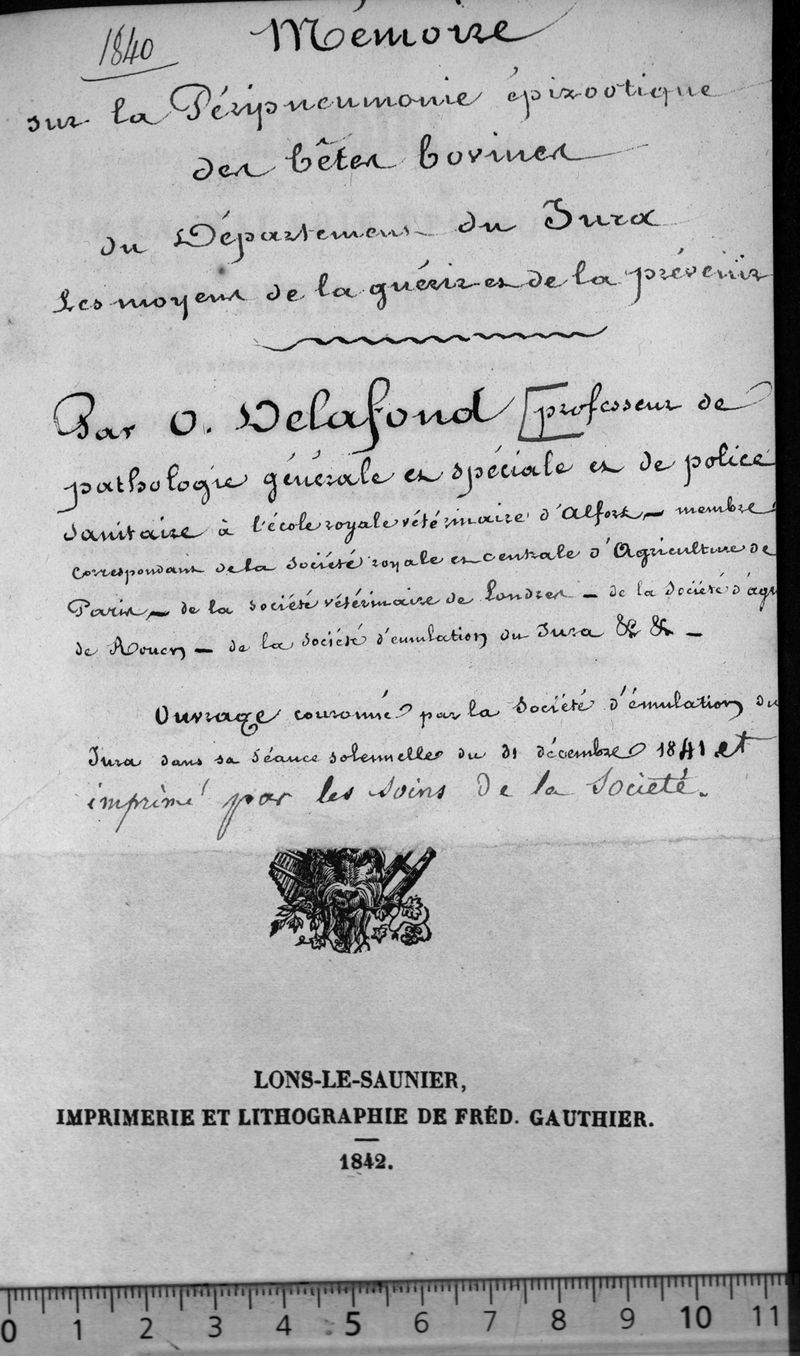 1840
Mémoire
sur la Péripneumonie épizootique
des bêtes bovines
du Département du Jura
Les moyens de la guérir et de la prévenir
Par O. Delafond [professeur de
pathologie générale et spéciale et de police
sanitaire à l'école royale vétérinaire d'Alfort, - membre
correspondant de la Société royale et centrale d'Agriculture de
Paris, - de la société vétérinaire de Londres - de la Société d'agr
de Rouen - de la Société d'émulation du Jura & & -
Ouvrage couronné par la Société d'émulation du
Jura dans sa séance solennelle du 31 décembre 1841 et
imprimé par les soins de la Société.
LONS-LE-SAUNIER,
IMPRIMERIE ET LITHOGRAPHIE DE FRÉD. GAUTHIER.
1842.
0 1 2 3 4 5 6 7 8 9 10 11